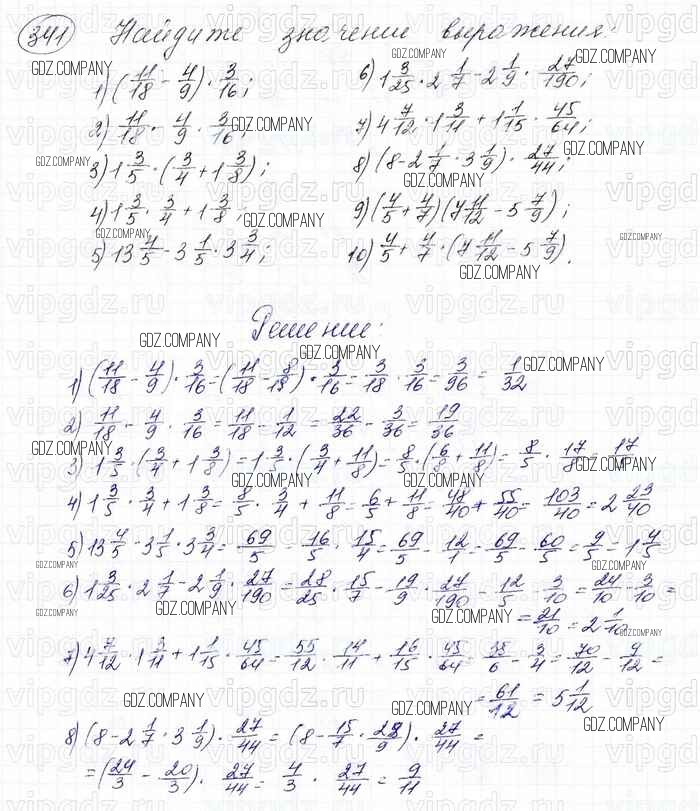 341 Найдите значение выражения:
1) (11/18 - 4/9) · 3/16;
2) 11/18 · 4/9 · 3/16
3) 1 3/5 · (3/4 + 1 3/8);
4) 1 3/5 · 3/4 + 1 3/8;
5) 13 4/5 - 3 1/5 · 3 3/4;
6) 1 3/25 · 2 1/7 - 2 1/9 · 27/190;
7) 4 7/12 · 1 3/11 + 1 1/15 · 45/64;
8) (8 - 2 1/7 · 3 1/9) · 27/44;
9) (4/5 + 4/7)(7 11/12 - 5 7/9);
10) 4/5 + 4/7 · (7 11/12 - 5 7/9).
Решение:
1) (11/18 - 4/9) · 3/16 = (11/18 - 8/18) · 3/16 = 3/18 · 3/16 = 3/96 = 1/32
2) 11/18 - 4/9 · 3/16 = 11/18 - 1/12 = 22/36 - 3/36 = 19/36
3) 1 3/5 · (3/4 + 1 3/8) = 1 3/5 · (3/4 + 11/8) = 8/5 · (6/8 + 11/8) = 8/5 · 17/8 = 17
4) 1 3/5 · 3/4 + 1 3/8 = 8/5 · 3/4 + 11/8 = 6/5 + 11/8 = 48/40 + 55/40 = 103/40 = 2 23/40
5) 13 4/5 - 3 1/5 · 3 3/4 = 69/5 - 16/5 · 15/4 = 69/5 - 12/1 = 69/5 - 60/5 = 9/5 - 1 4/5
6) 1 3/25 · 2 1/7 - 2 1/9 · 27/190 = 28/25 · 15/7 - 19/9 · 27/190 = 12/5 - 3/10 = 24/10 - 3/10 =
= 21/10 = 2 1/10
7) 4 7/12 · 1 3/11 + 1 1/15 · 45/64 = 55/12 · 14/11 + 16/15 · 45/64 = 35/6 - 3/4 = 70/12 - 9/12 =
= 61/12 = 5 1/12
8) (8 - 2 1/7 · 3 1/9) · 27/44 = (8 - 15/7 · 28/9) · 27/44 =
= (24/3 - 20/3) · 27/44 = 4/3 · 27/44 = 9/11
GDZ.COMPANY
vipgdz.ru